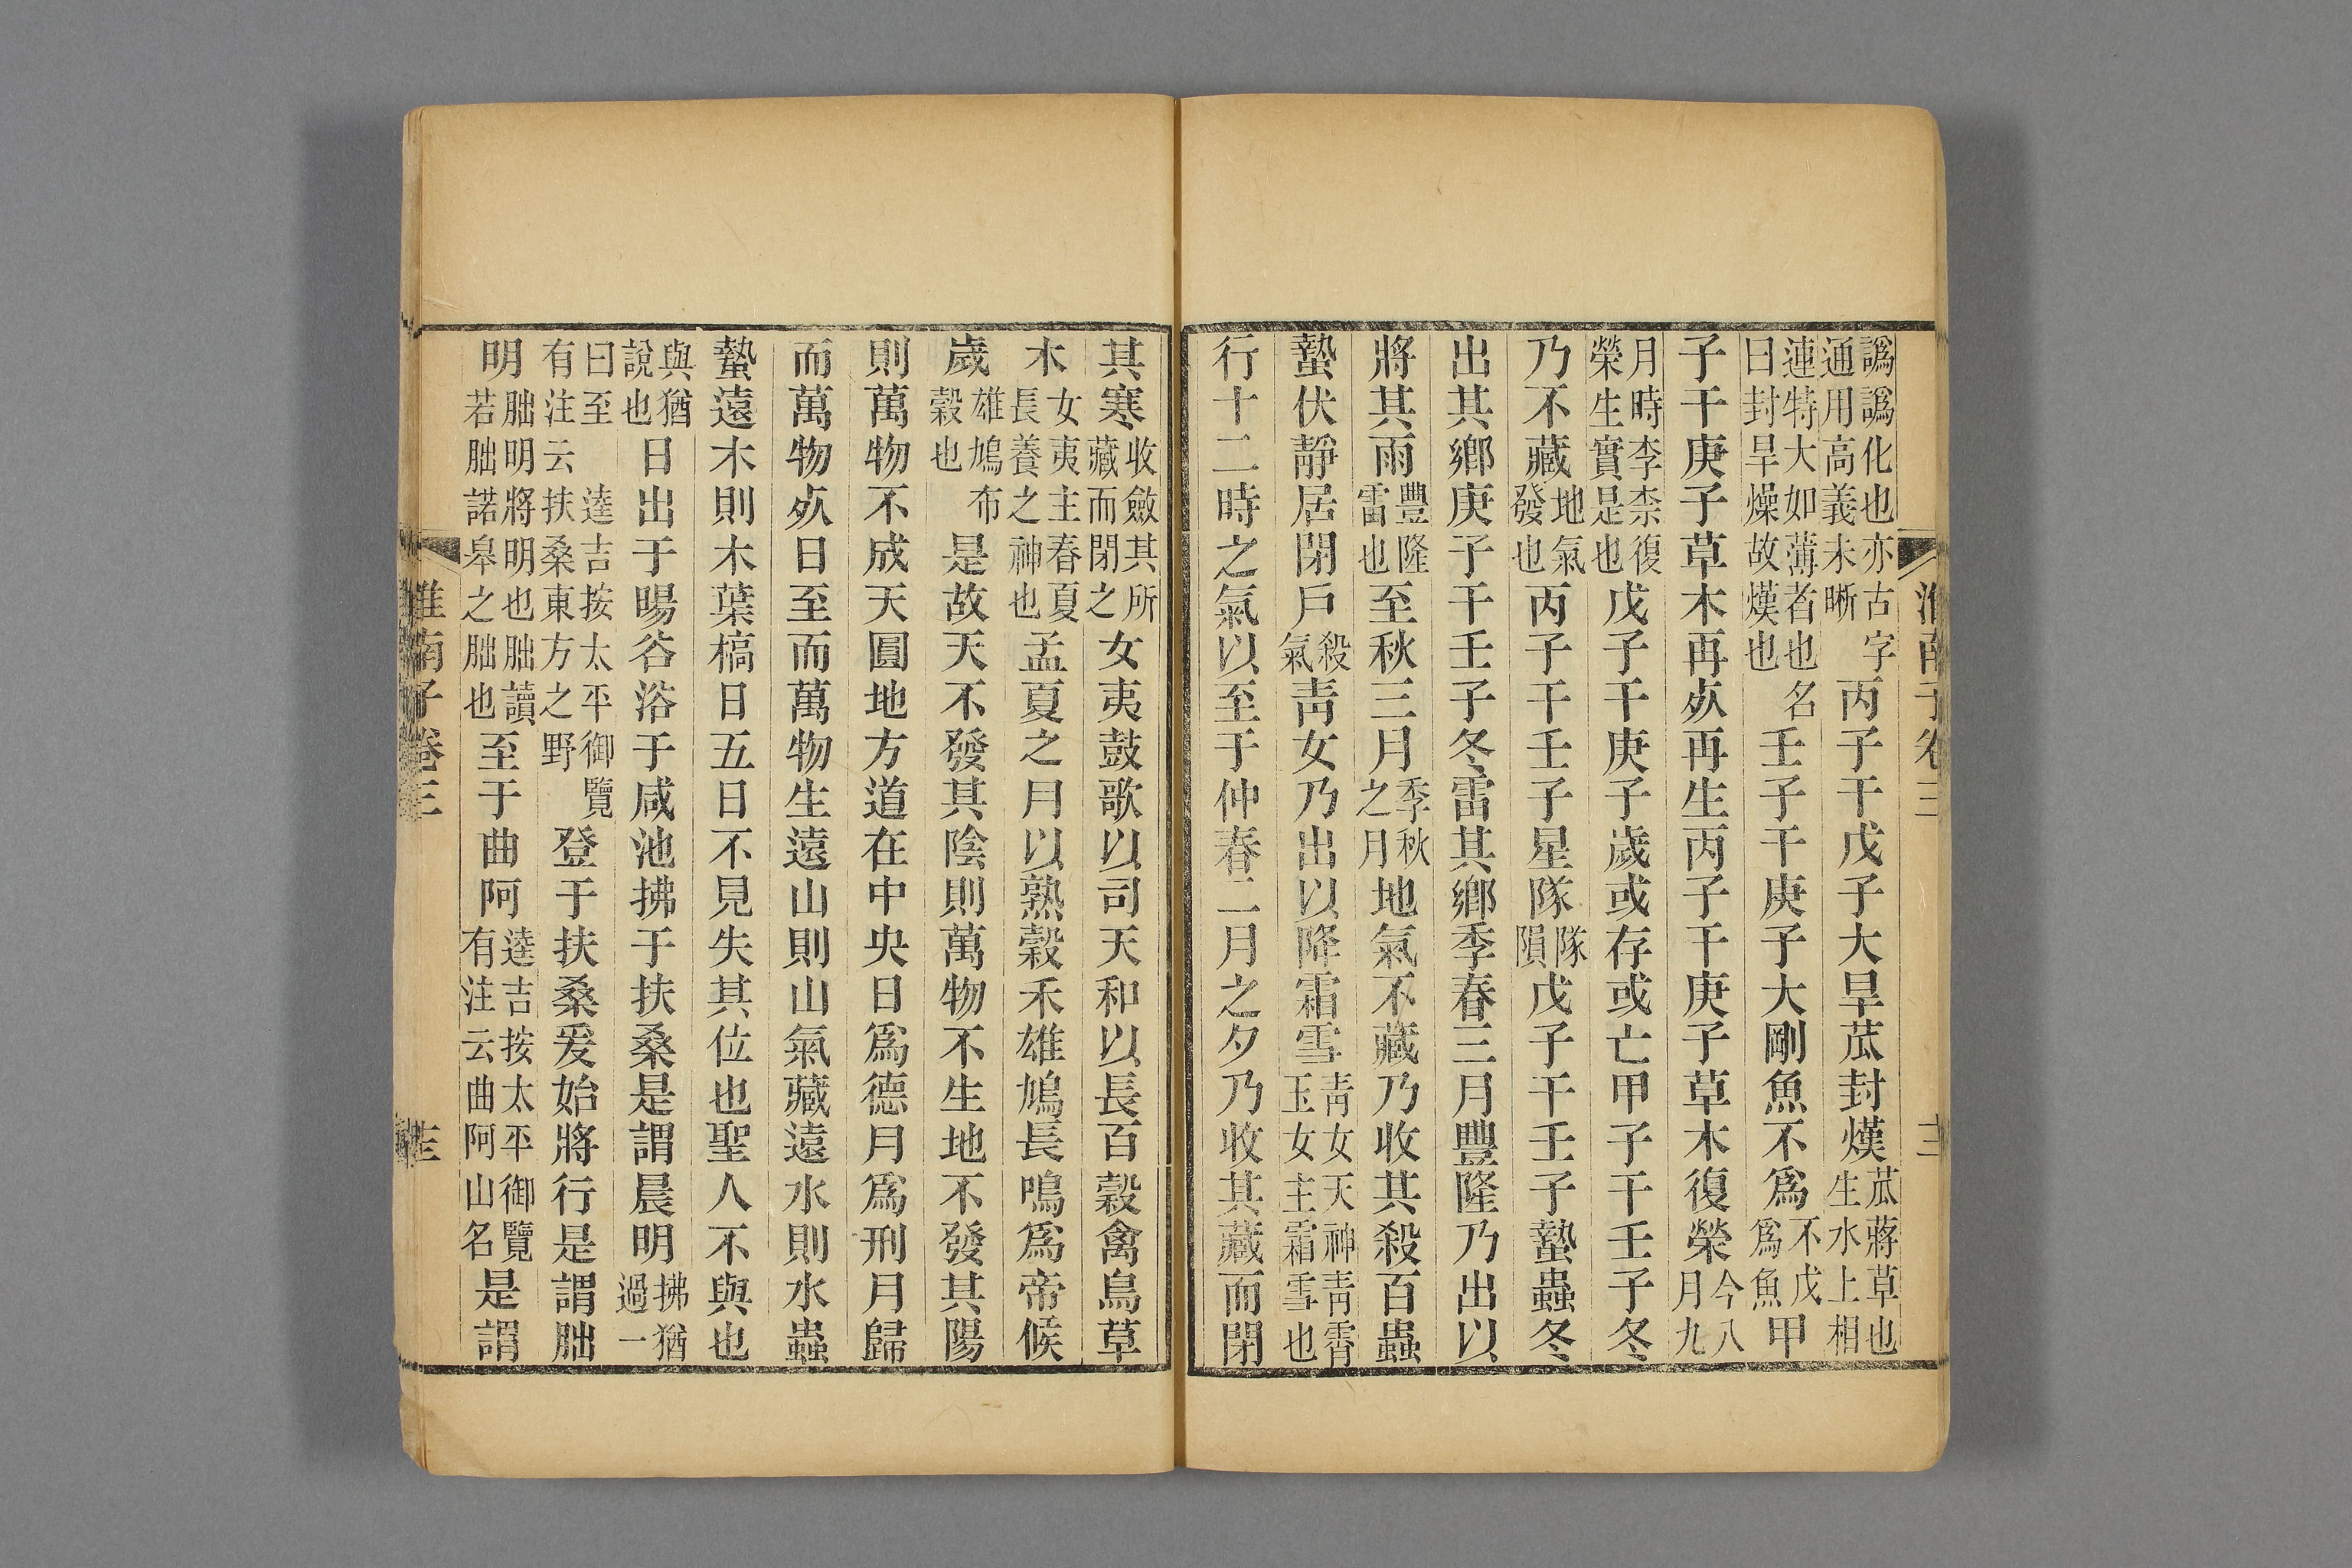 淮南子卷三
譌譌化也亦古字通用高義未晰丙子干戊子大旱苽封熯苽蔣草也生水上相
連特大如薄者也名曰封旱燥故熯也壬子干庚子大剛魚不爲不戊爲魚甲
子干庚子草木再死再生丙子干庚子草木復榮今八月九
月時李柰復榮生實是也戊子干庚子歲或存或亡甲子干壬子冬
乃不藏地氣發也丙子干壬子星隊隊隕戊子干壬子蟄蟲冬
出其鄉庚子干壬子冬雷其鄉季春三月豐隆乃出以
將其雨豐隆雷也至秋三月季秋之月地氣不藏乃收其殺百蟲
蟄伏靜居閉戶殺氣靑女乃出以降霜雪靑女天神靑霄玉女主霜雪也
行十二時之氣以至于仲春二月之夕乃收其藏而閉
其寒收斂其所藏而閉之女夷鼓歌以司天和以長百穀禽鳥草
木女夷主春夏長養之神也孟夏之月以熟穀禾雄鳩長鳴爲帝候
歲雄鳩布穀也是故天不發其陰則萬物不生地不發其陽
則萬物不成天圓地方道在中央日爲德月爲刑月歸
而萬物死日至而萬物生遠山則山氣藏遠水則水蟲
蟄遠木則木葉槁日五日不見失其位也聖人不與也
與猶說也日出于暘谷浴于咸池拂于扶桑是謂晨明拂猶過一
曰至逵吉按太平御覽有注云扶桑東方之野登于扶桑爰始將行是謂朏
明朏明將明也朏讀若朏諾皋之朏也至于曲阿逵吉按太平御覽有注云曲阿山名是謂
淮南子卷三